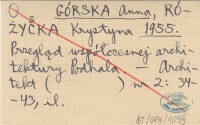 GÓRSKA Anna, RÓ-
ŻYCKA Krystyna 1955.
Przegląd współczesnej archi-
tektury Podhala — Archi-
tekt ( ) nr 2: 34-
-43, il.
BT/014/1099